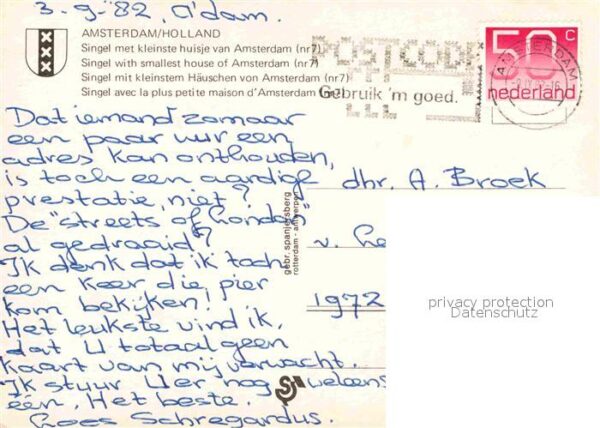 3.9.'82, A'dam.
AMSTERDAM/HOLLAND
Singel met kleinste huisje van Amsterdam (nr7)
Singel with smallest house of Amsterdam (nr7)
Singel mit kleinstem Häuschen von Amsterdam (nr7)
Singel avec la plus petite maison d'Amsterdam (nr7)
POSTCODE
Gebruik 'm goed.
AMSTERDAM
50 c
nederland
Dat iemand zomaar
een paar uur een
adres kan onthouden,
is toch een aardige
prestatie, niet?
De "streets of London"
al gedraaid?
Ik denk dat ik toch
een keer die pier
kom bekijken!
Het leukste vind ik,
dat U totaal geen
kaart van mij verwacht.
Ik stuur U er nog weleens
één. Het beste.
Loes Schregardus.
gebr. spanjersberg
rotterdam - antwerpen
dhr. A. Broek
v. Le
1972
privacy protection
Datenschutz